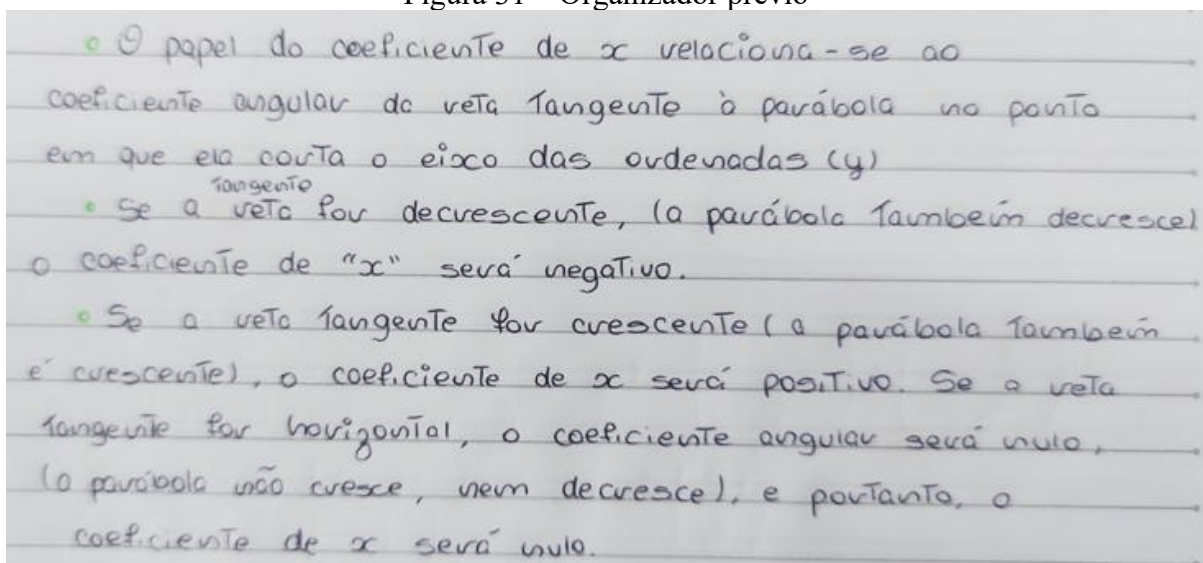 Figura 31 – Organizador prévio
• O papel do coeficiente de x relaciona-se ao
coeficiente angular da reta tangente à parábola no ponto
em que ela corta o eixo das ordenadas (y)
tangente
• Se a reta for decrescente, (a parábola também decresce)
o coeficiente de "x" será negativo.
• Se a reta tangente for crescente (a parábola também
é crescente), o coeficiente de x será positivo. Se a reta
tangente for horizontal, o coeficiente angular será nulo,
(a parábola não cresce, nem decresce), e portanto, o
coeficiente de x será nulo.